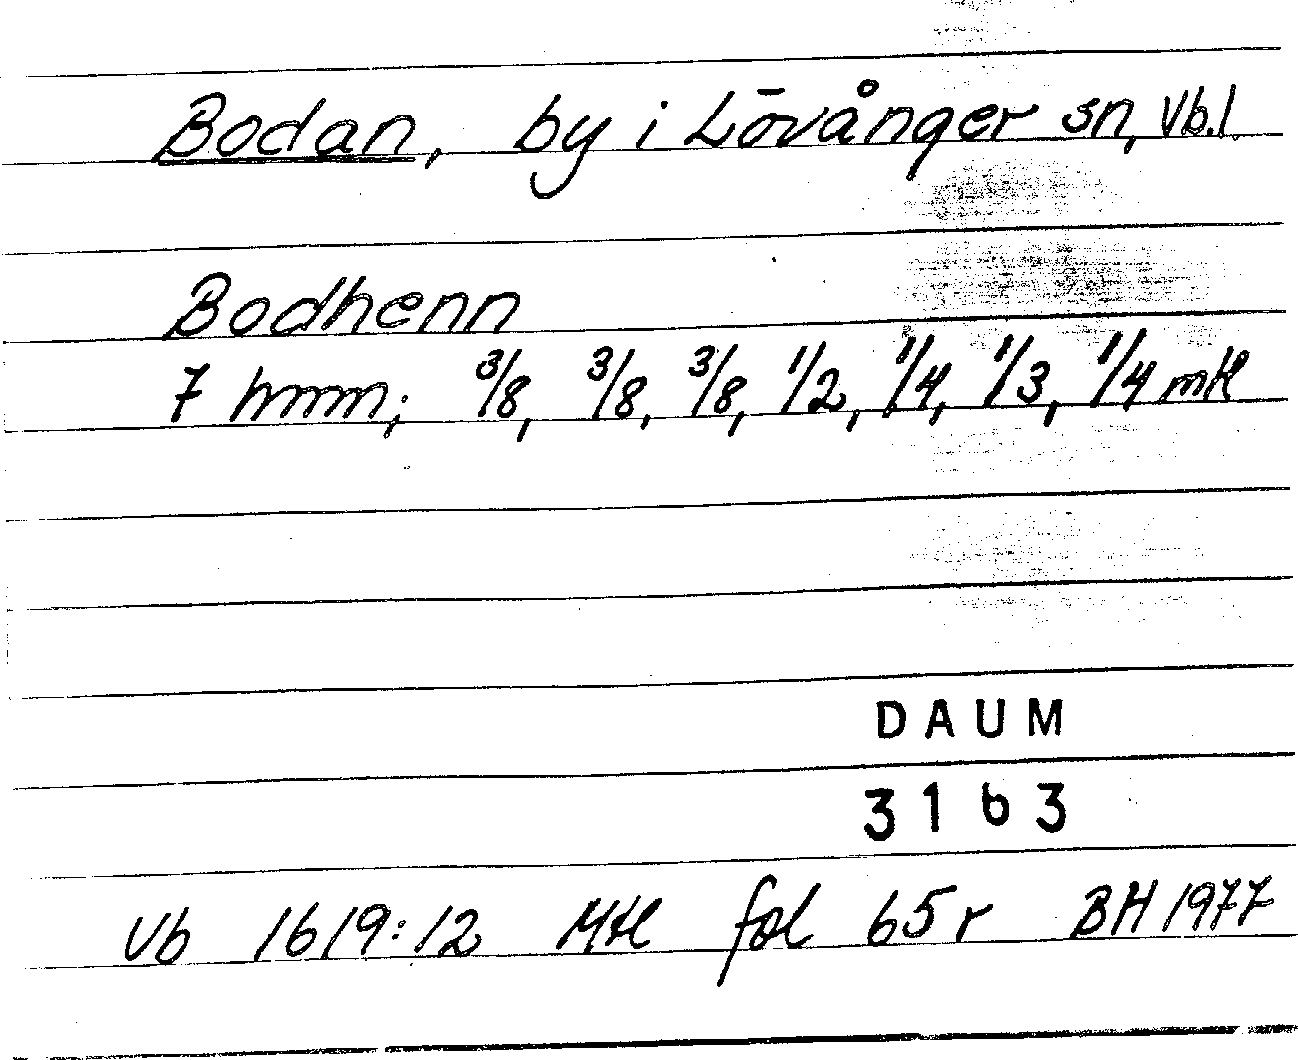 Bodan, by i Lövånger sn, Vb.l.
Bodhenn
7 hmm; 3/8, 3/8, 3/8, 1/2, 1/4, 1/3, 1/4 mtl
DAUM
3163
Vb 1619:12 Mtl fol 65 r BH 1977